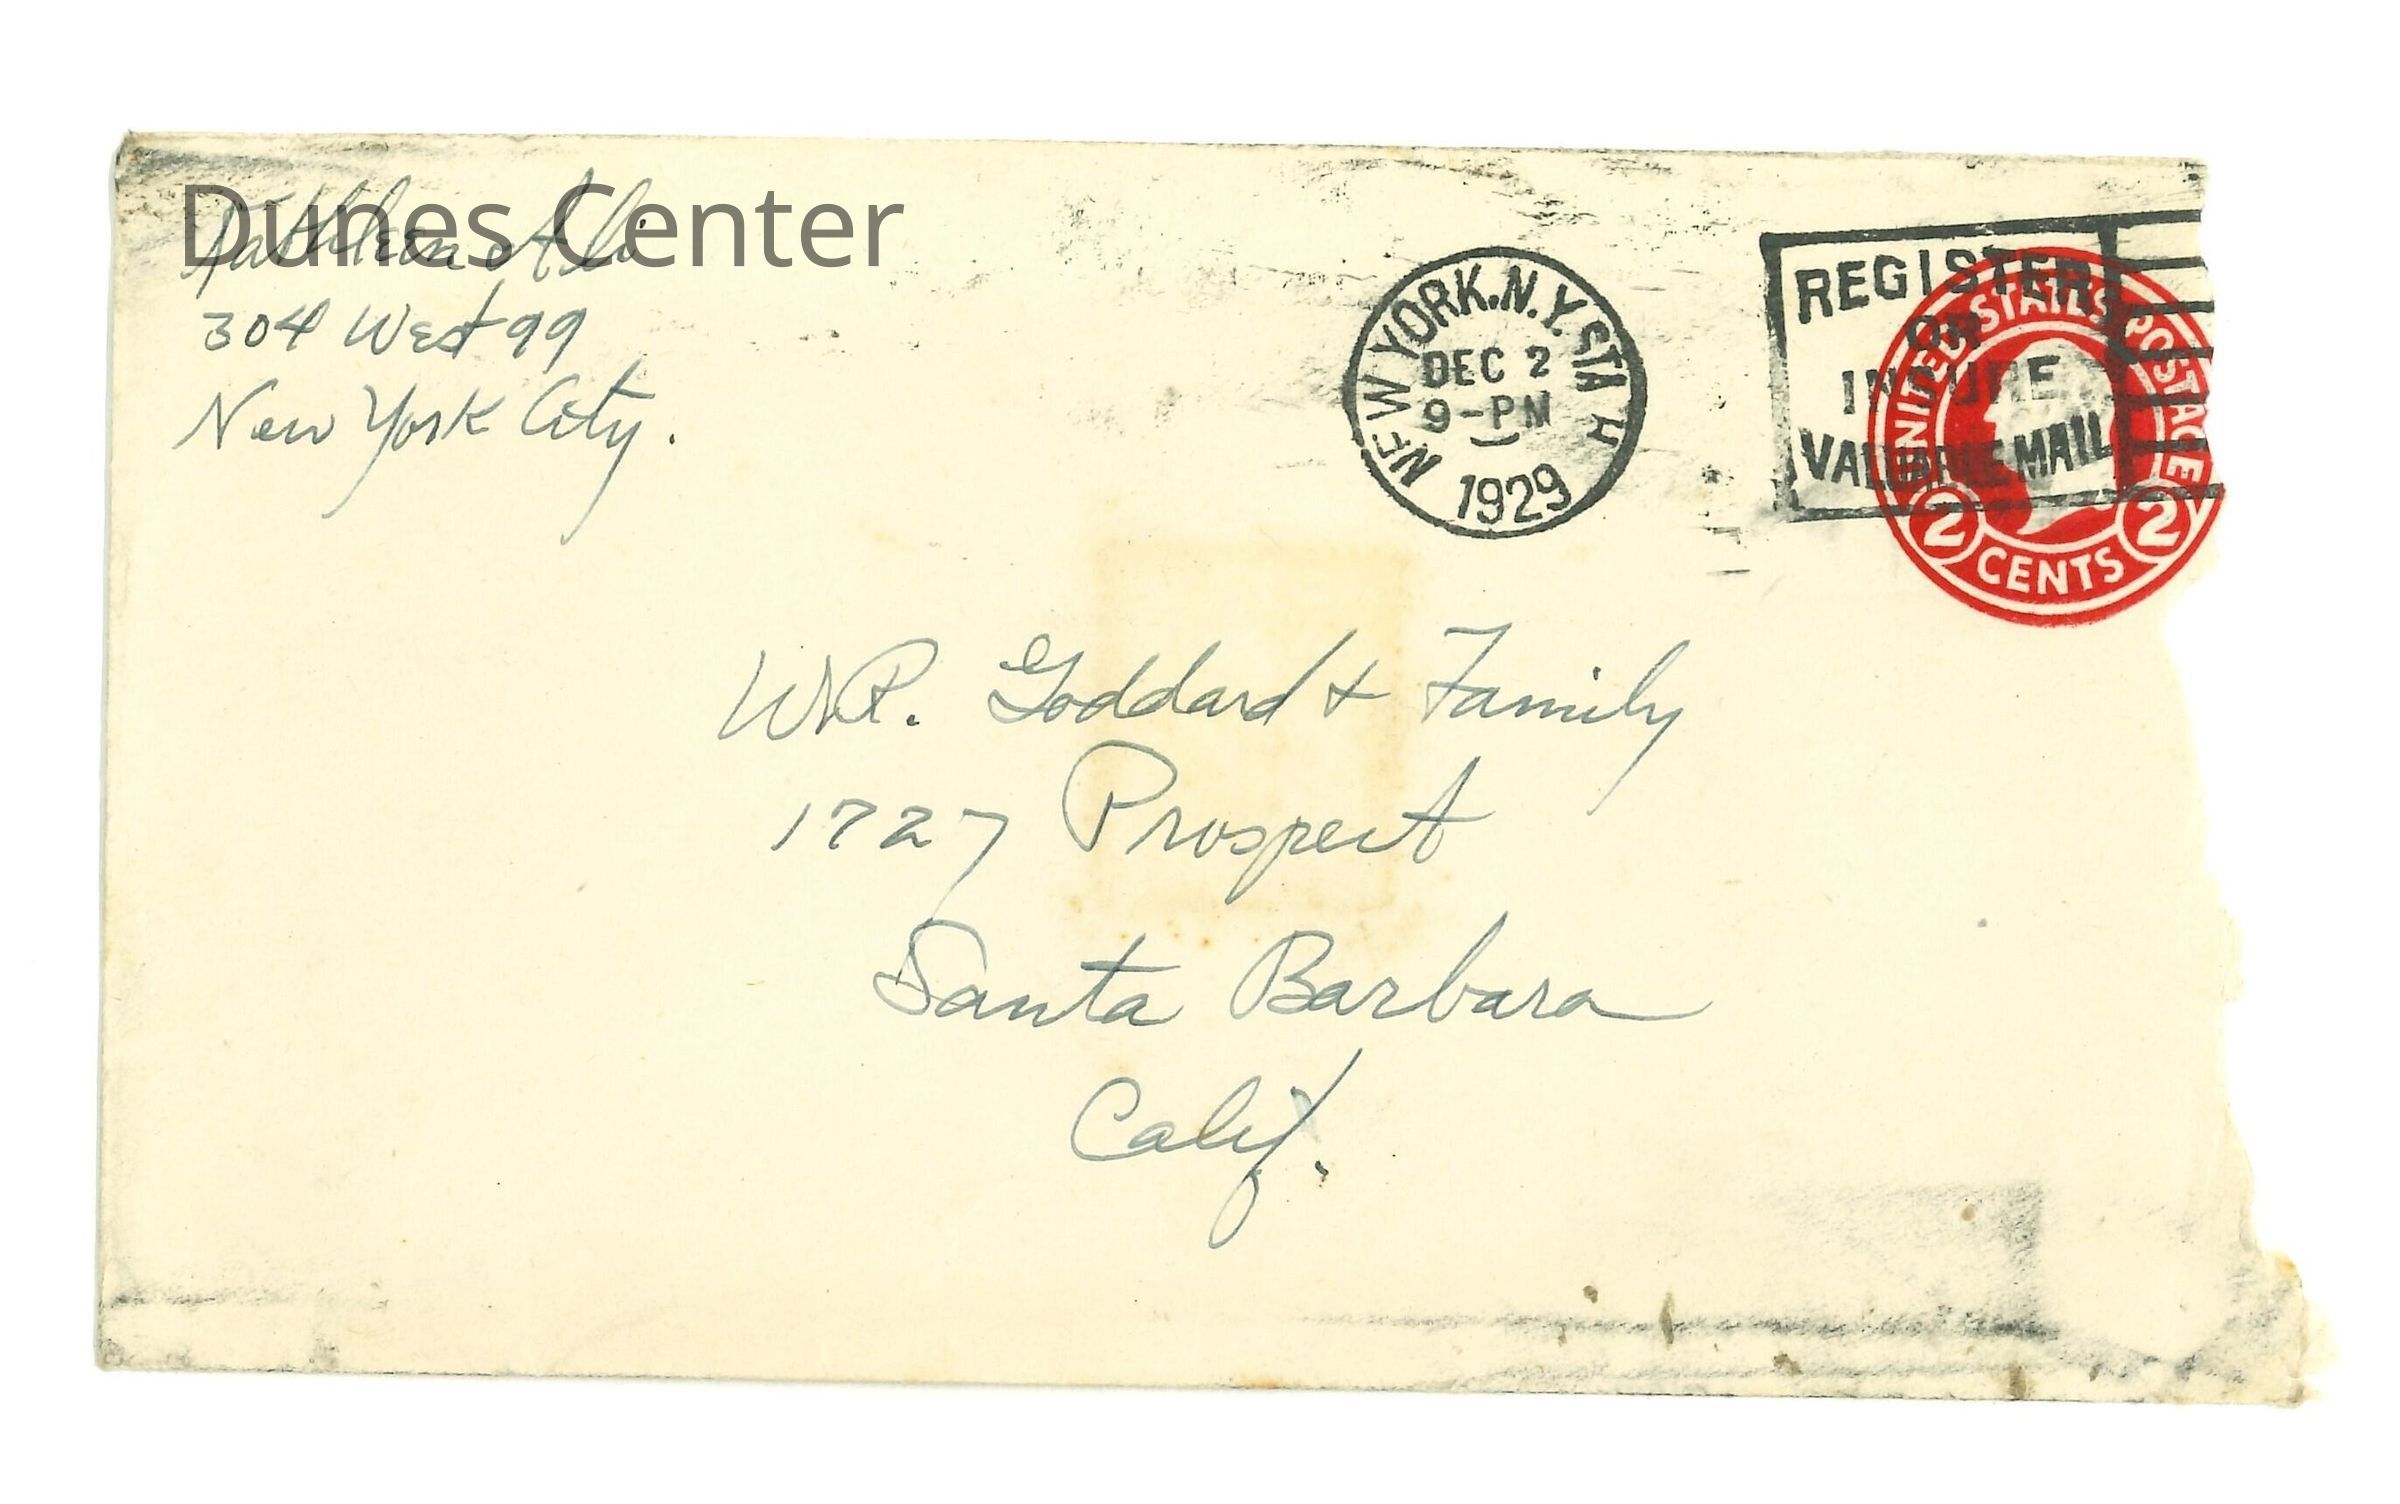 Dunes Center
Kathleen Ali
304 West 99
New York City.
NEW YORK, N.Y. STA H
DEC 2
9-PM
1929
REGISTER
OR
INSURE
VALUABLE MAIL
UNITED STATES POSTAGE
2 CENTS 2
W.R. Goddard + Family
1727 Prospect
Santa Barbara
Calif.